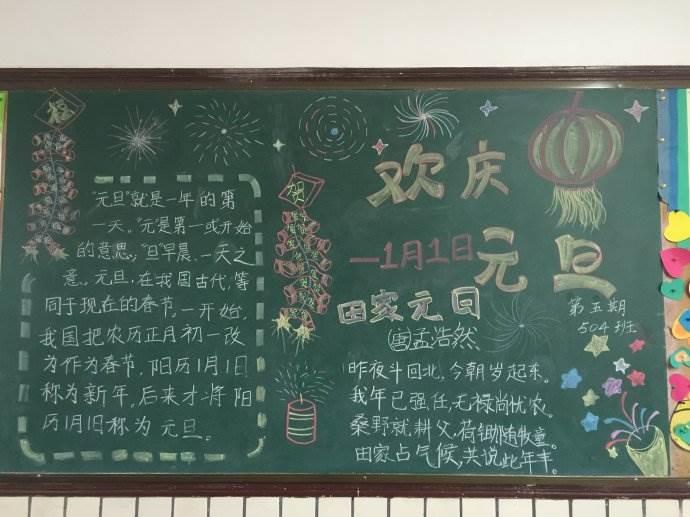 福
"元旦"就是一年的第
一天。"元"是第一或开始
的意思,"旦"早晨、一天之
意。元旦,在我国古代,等
同于现在的春节,一开始,
我国把农历正月初一改
为作为春节,阳历1月1日
称为新年,后来才将阳
历1月1日称为元旦。
贺
欢庆
—1月1日元旦
田家元日
(唐)孟浩然
昨夜斗回北,今朝岁起东。
我年已强仕,无禄尚忧农。
桑野就耕父,荷锄随牧童。
田家占气候,共说此年丰。
第五期
504班